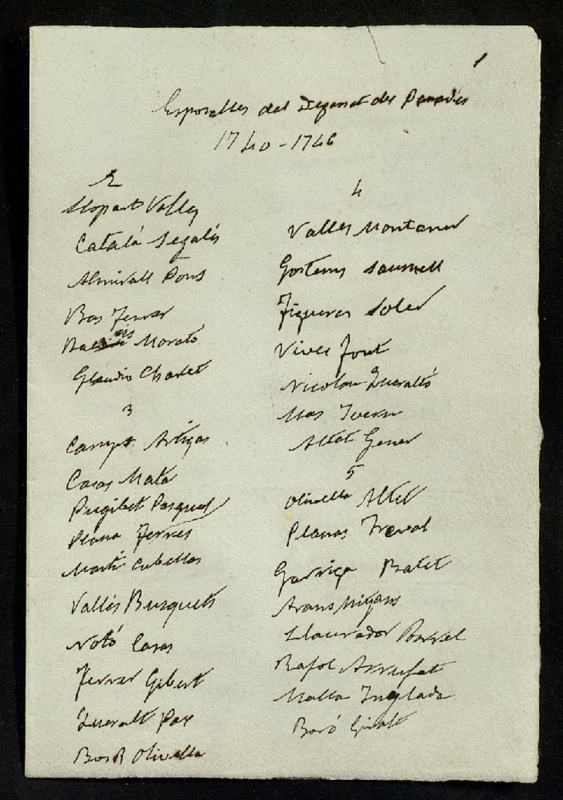 1
Esposalles del Deganat del Penedès
1740-1746
2
Llopart Valles
Català Segalés
Almirall Pons
Bas Ferrer
Morató
Claudio Charlet
3
Camps Artigas
Casas Mata
Puigibet Pasqual
Plana Ferrer
Martí Cubellas
Vallès Busquets
Notó Casas
Ferrer Gibert
Queralt Pax
Bosch Olivella
4
Valles Montaner
Saumell
Figueras Soler
Vives Font
Nicolau Queraltó
Mas Ivern
Altet Gener
5
Olivella Altet
Planas Freval
Garriga Batet
Arans Mijans
Llaurador Borrel
Rafol Arrufat
Malla Inglada
Baró Giralt